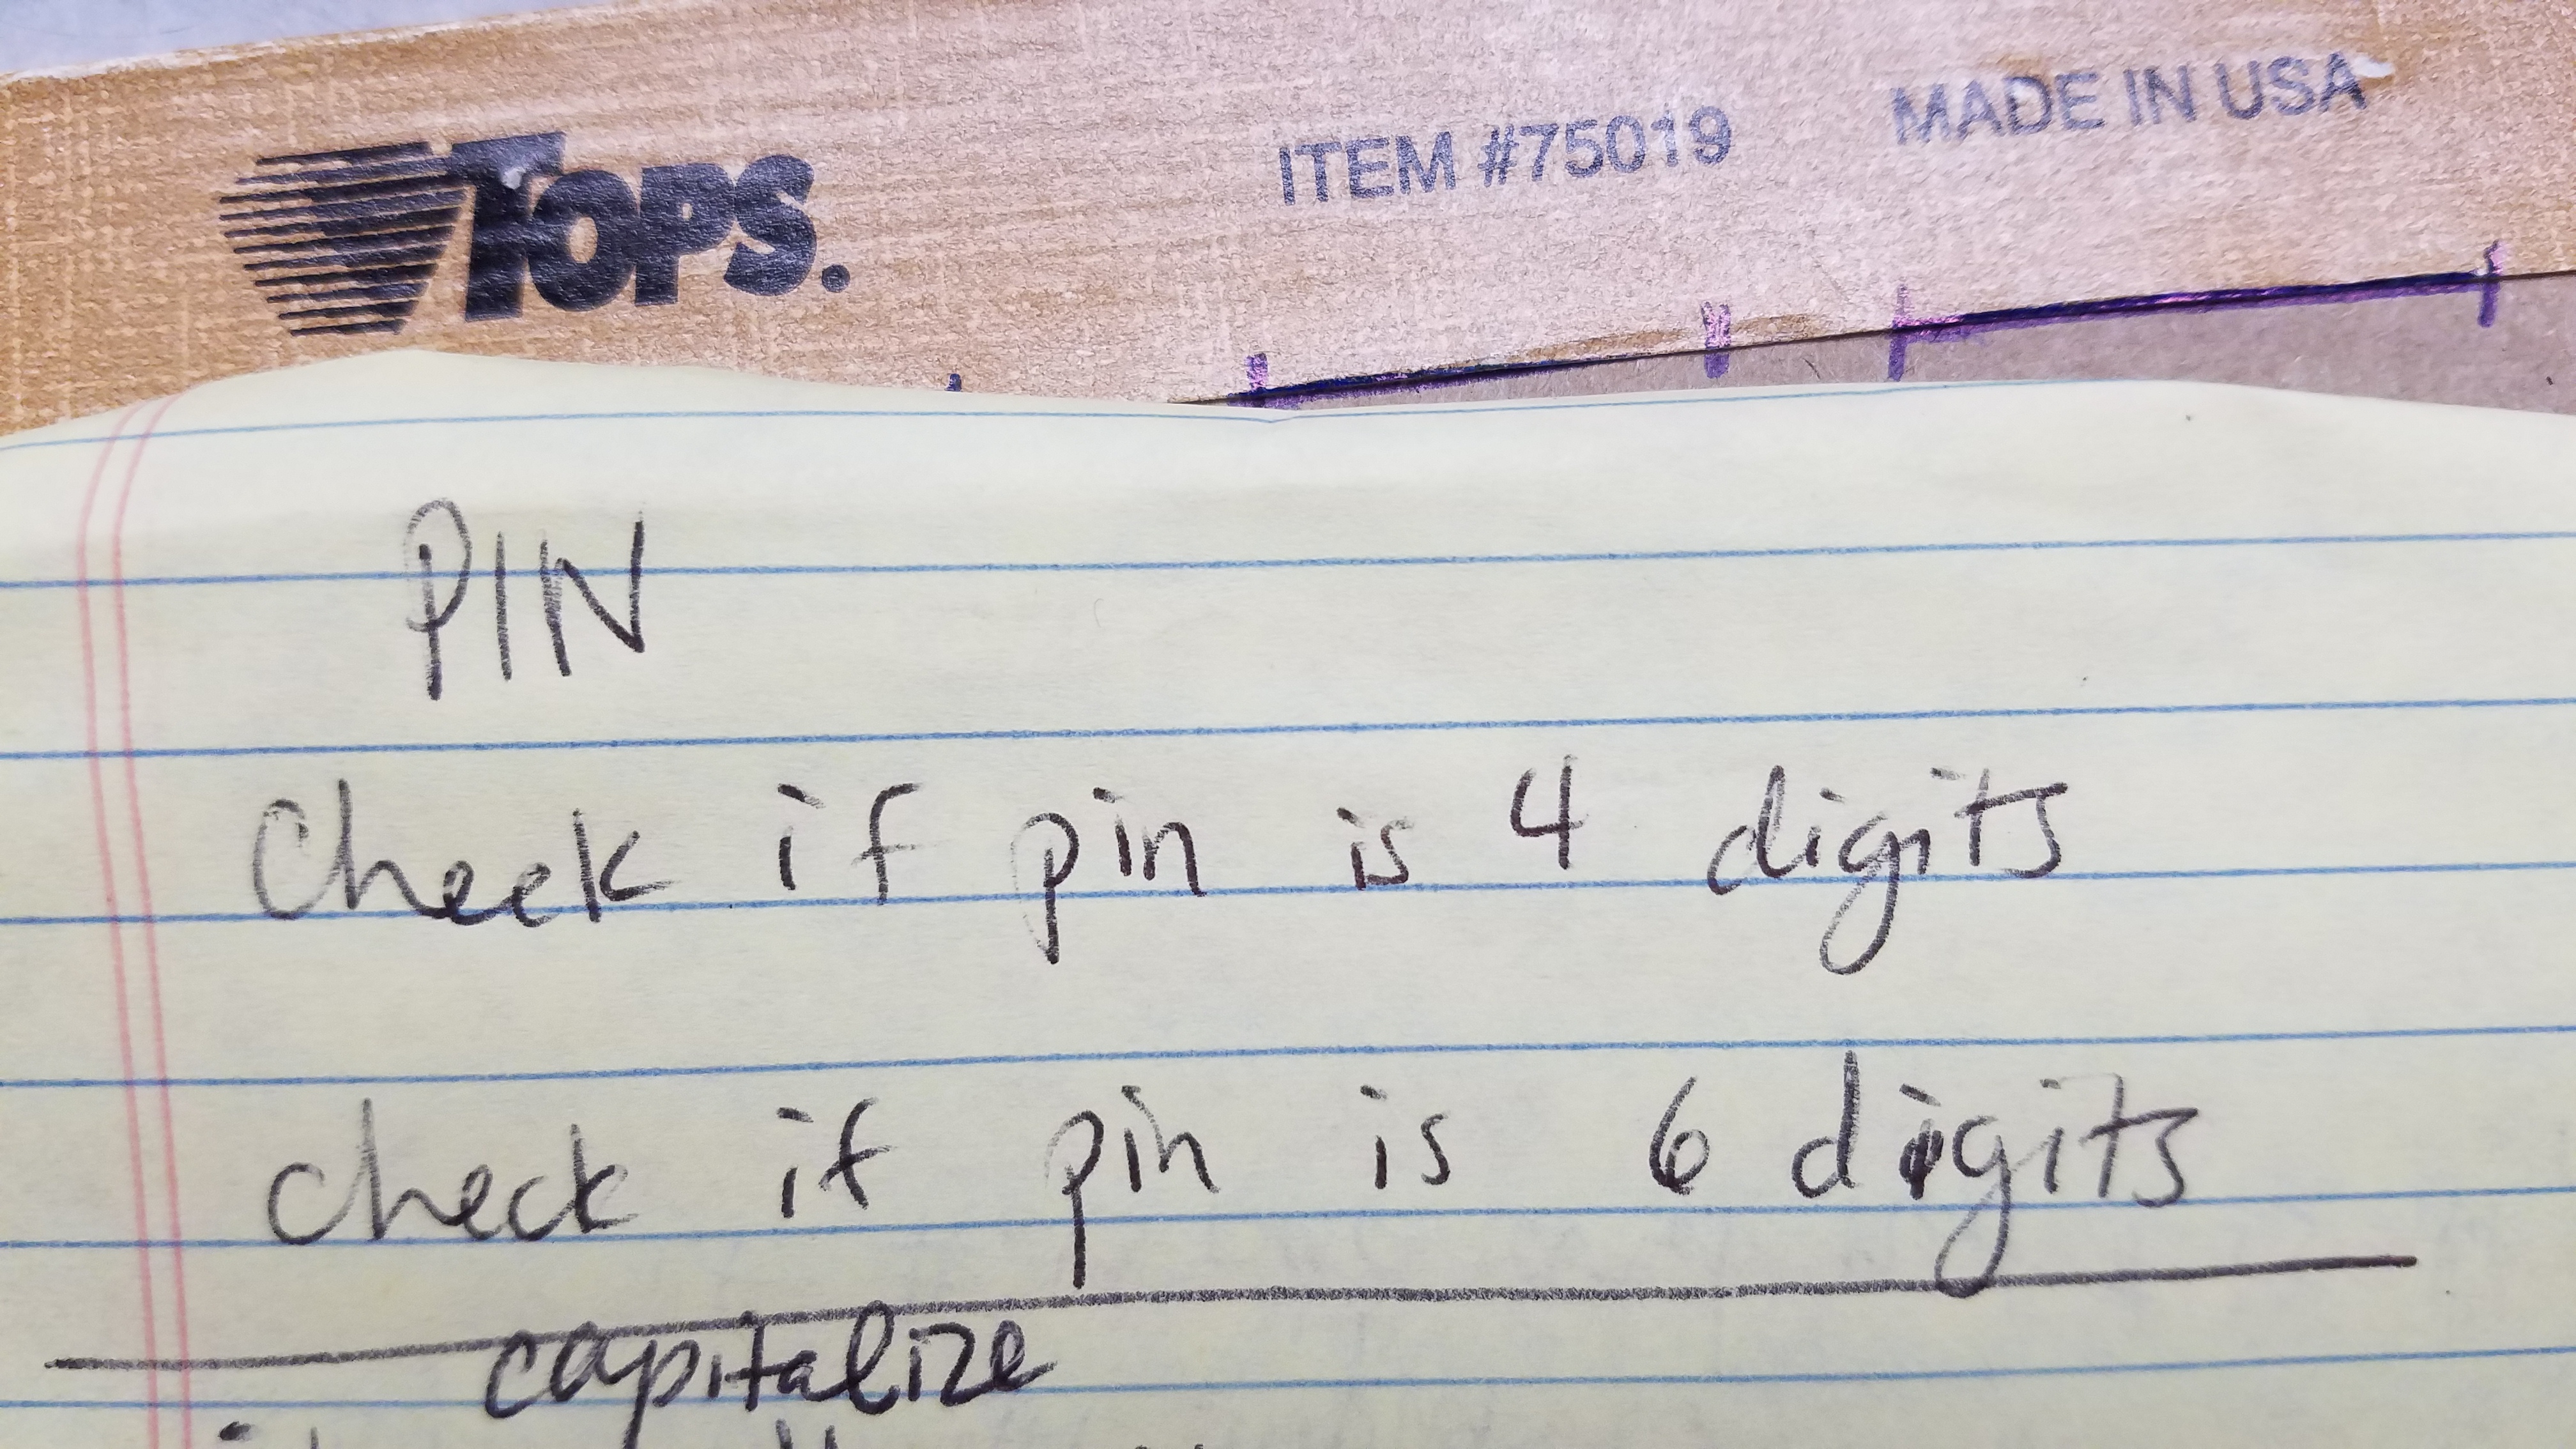 TOPS. ITEM #75019 MADE IN USA
PIN
Check if pin is 4 digits
check if pin is 6 digits
capitalize